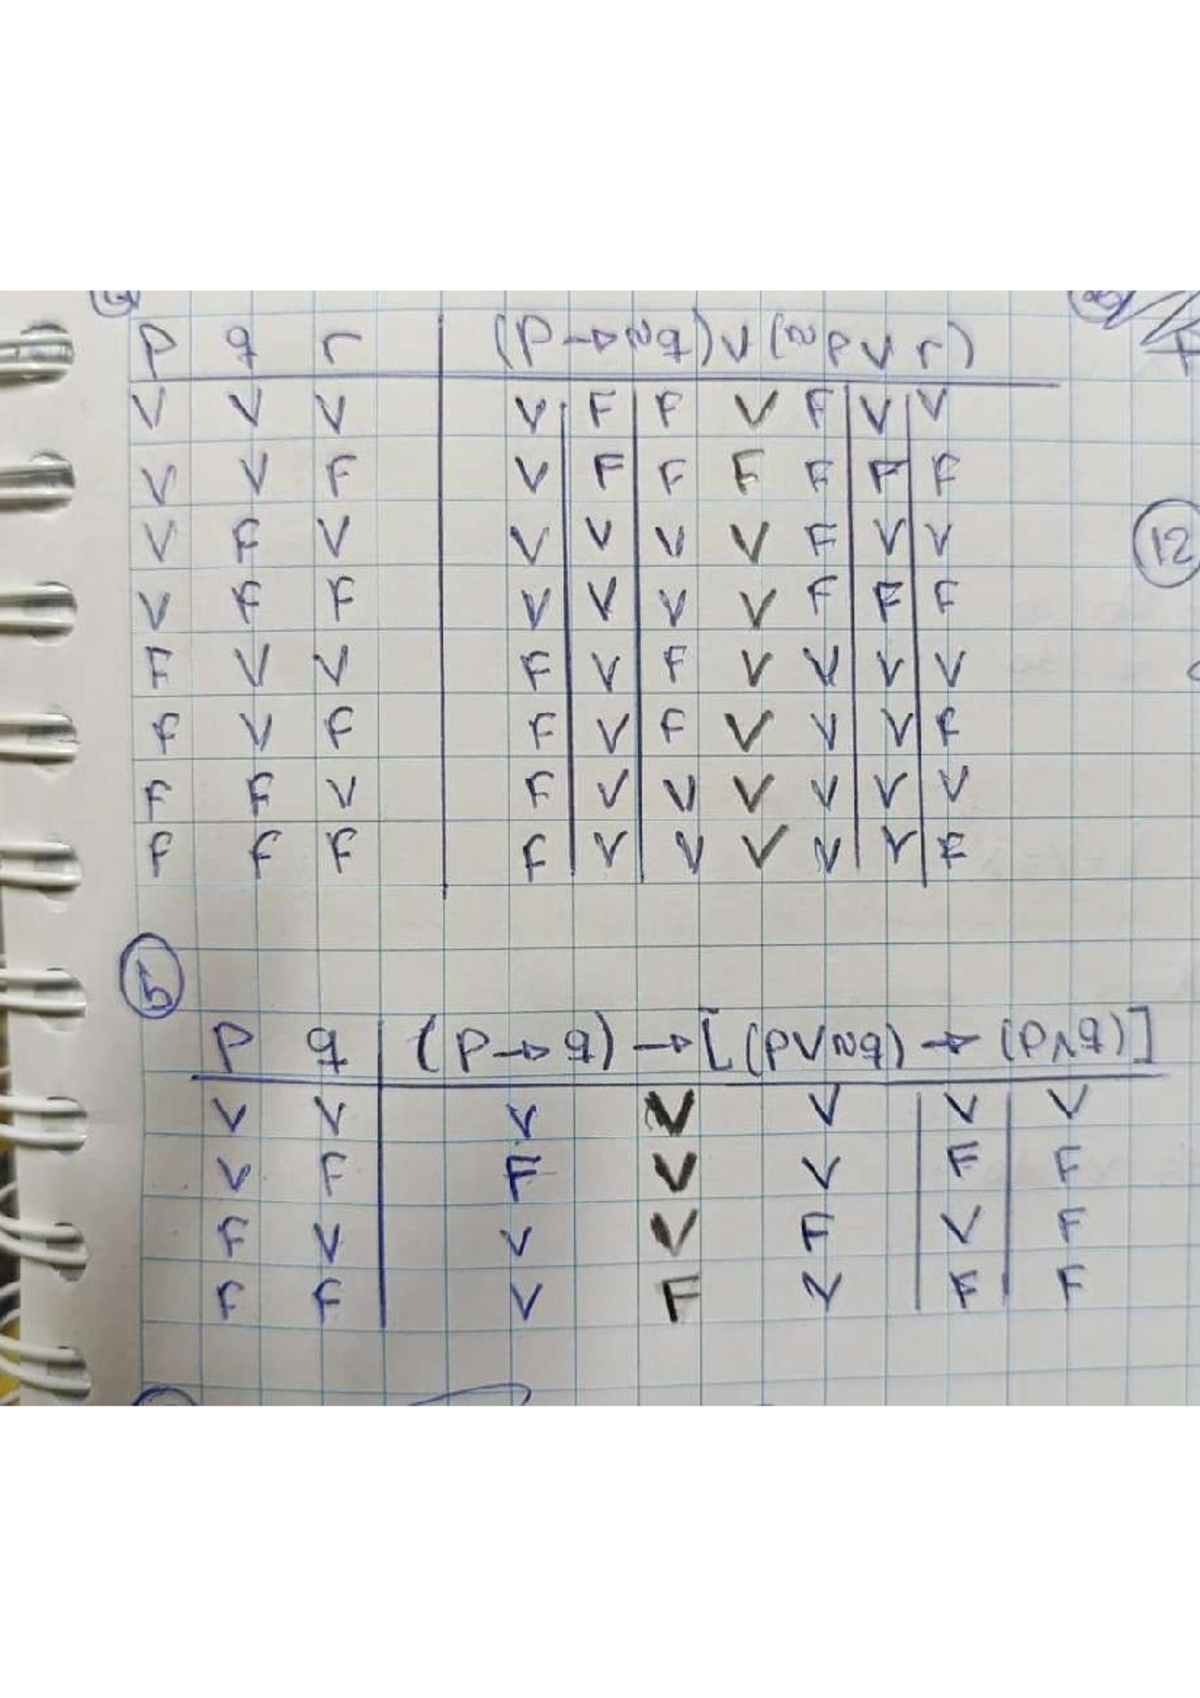 p q r (p → ~q) ∨ (~p ∨ r)
V V V V F F V F V V
V V F V F F F F F F
V F V V V V V F V V
V F F V V V V F F F
F V V F V F V V V V
F V F F V F V V V F
F F V F V V V V V V
F F F F V V V V V F
12
5
p q (p → q) → [(p ∨ ~q) → (p ∧ q)]
V V V V V V V
V F F V V F F
F V V V F V F
F F V F V F F